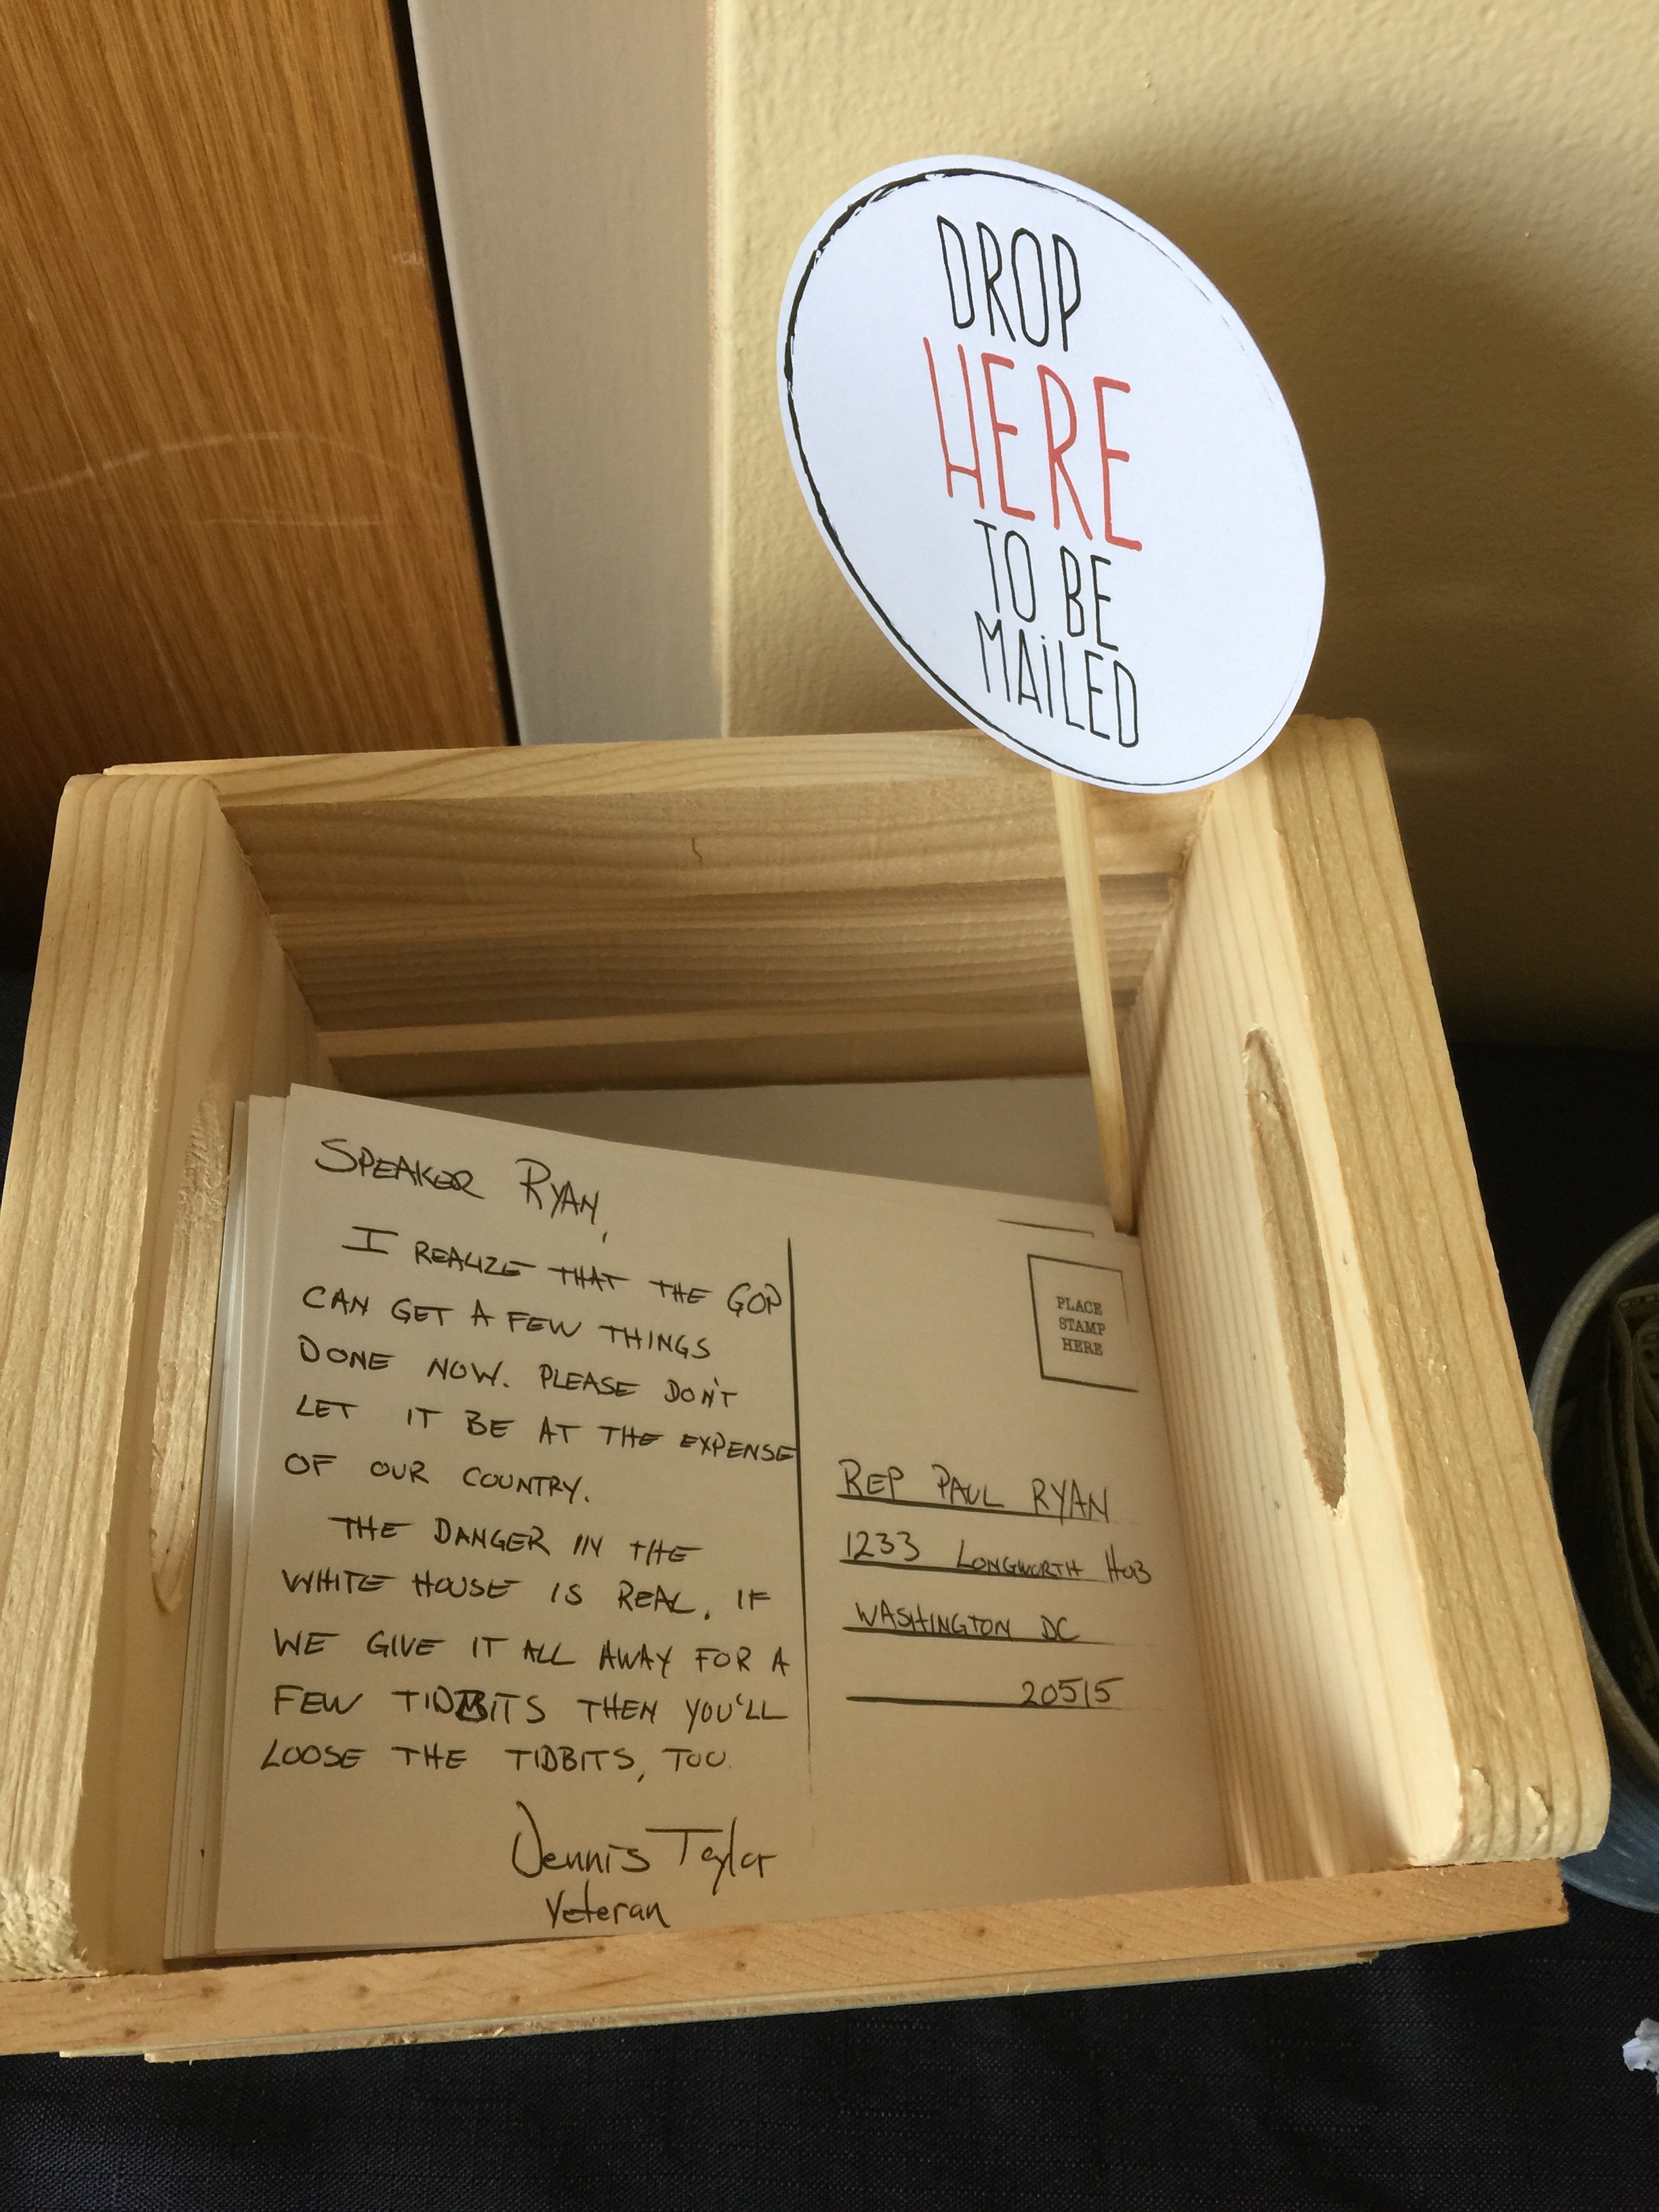 DROP
HERE
TO BE
MAiLED
SPEAKER RYAN,
I REALIZE THAT THE GOP
CAN GET A FEW THINGS
DONE NOW. PLEASE DON'T
LET IT BE AT THE EXPENSE
OF OUR COUNTRY.
THE DANGER IN THE
WHITE HOUSE IS REAL. IF
WE GIVE IT ALL AWAY FOR A
FEW TIDBITS THEN YOU'LL
LOOSE THE TIDBITS, TOO.
Dennis Taylor
Veteran
PLACE
STAMP
HERE
REP PAUL RYAN
1233 LONGWORTH HOB
WASHINGTON DC
20515